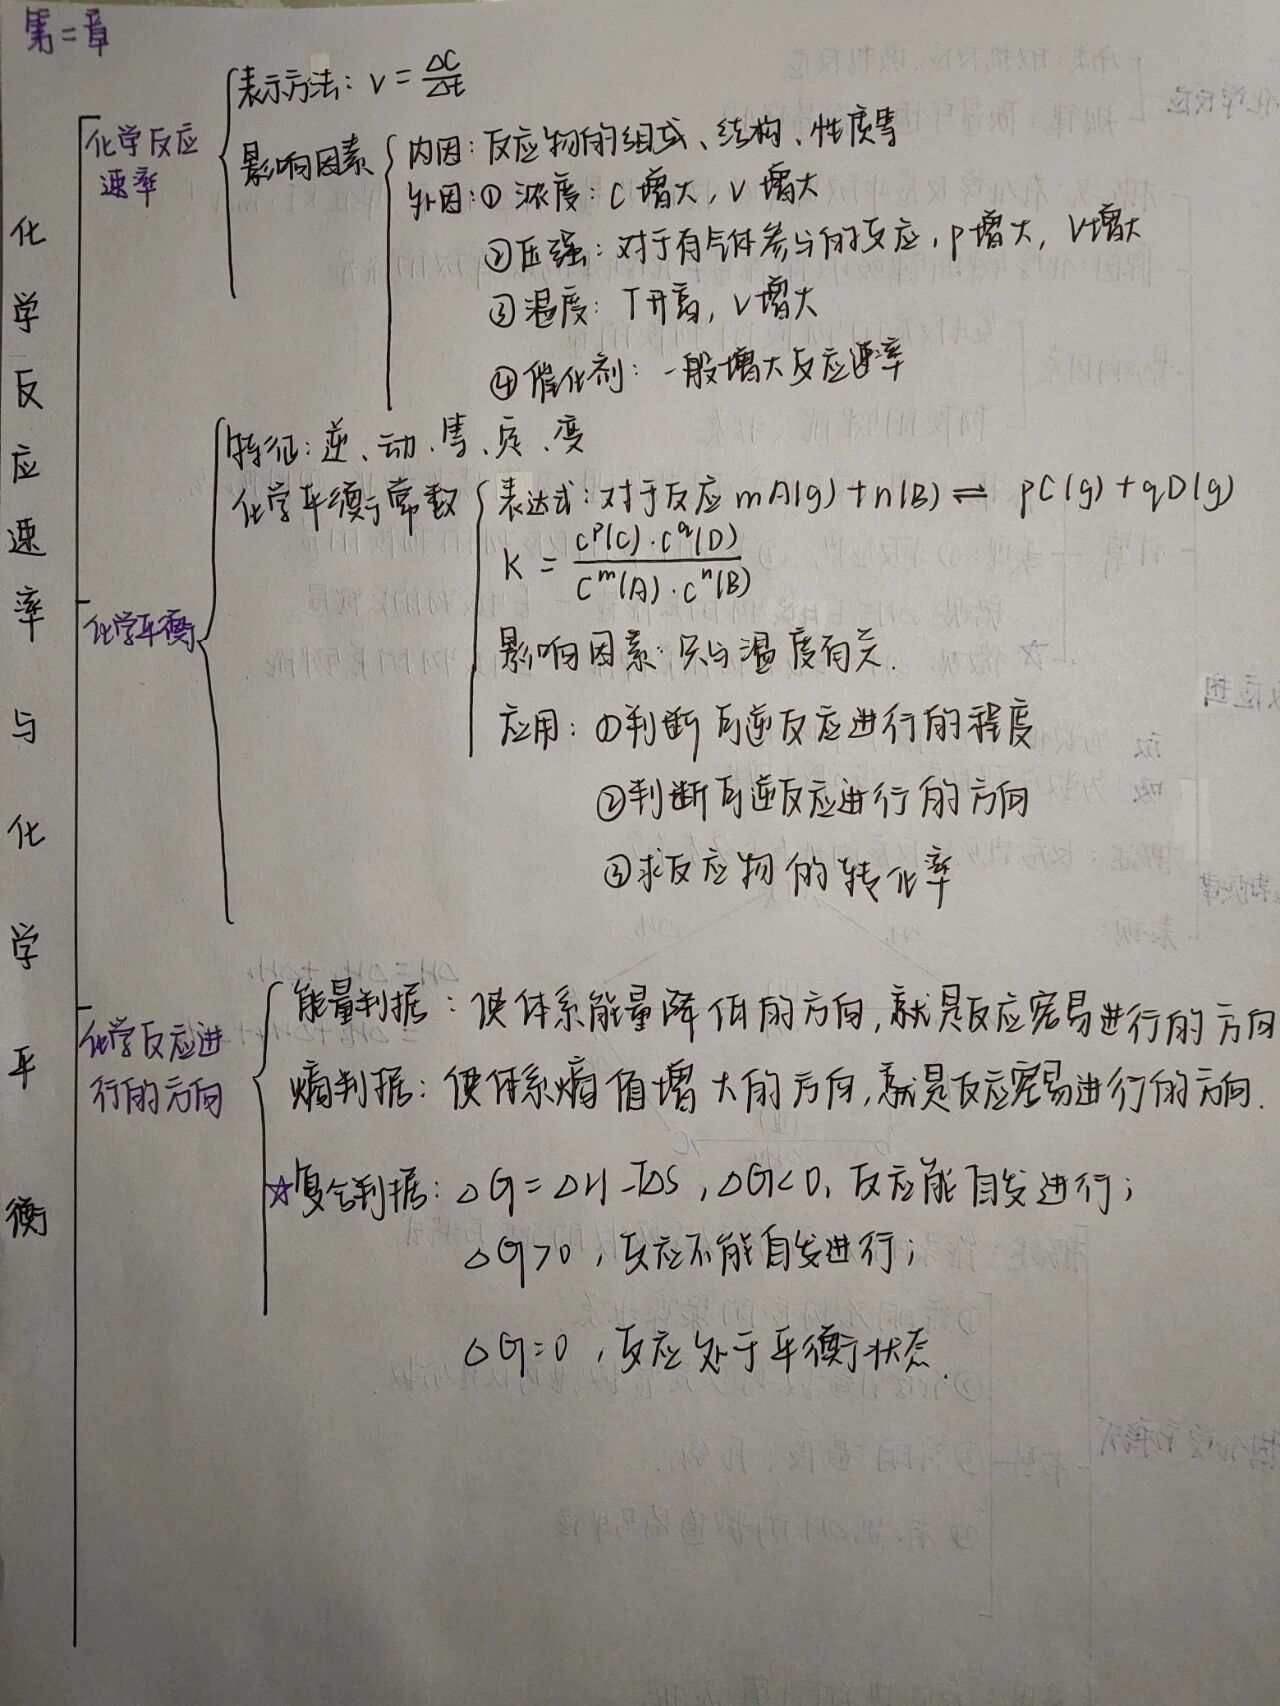 第二章
化学反应速率与化学平衡
化学反应
速率
表示方法：v=ΔC/Δt
影响因素
内因：反应物的组成、结构、性质等
外因：①浓度：C增大，V增大
②压强：对于有气体参与的反应，P增大，V增大
③温度：T升高，V增大
④催化剂：一般增大反应速率
化学平衡
特征：逆、动、等、定、变
化学平衡常数
表达式：对于反应mA(g)+n(B)⇌pC(g)+qD(g)
K=C^p(C)·C^q(D)/C^m(A)·C^n(B)
影响因素：只与温度有关.
应用：①判断可逆反应进行的程度
②判断可逆反应进行的方向
③求反应物的转化率
化学反应进
行的方向
能量判据：使体系能量降低的方向，就是反应容易进行的方向
熵判据：使体系熵值增大的方向，就是反应容易进行的方向.
☆复合判据：ΔG=ΔH-TΔS，ΔG<0，反应能自发进行；
ΔG>0，反应不能自发进行；
ΔG=0，反应处于平衡状态.